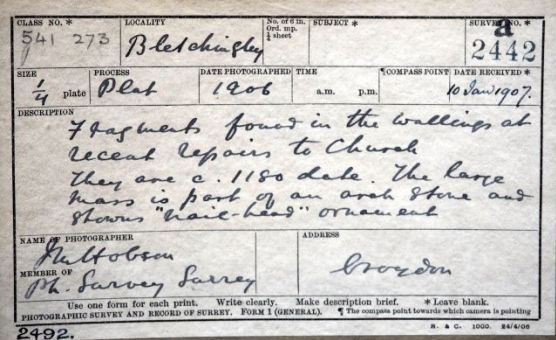 CLASS NO.* LOCALITY No. of 6 in. Ord. mp. ¼ sheet SUBJECT* SURVEY NO.*
541 273 Bletchingley a 2442
SIZE PROCESS DATE PHOTOGRAPHED TIME ¶COMPASS POINT DATE RECEIVED*
¼ plate Plat 1906 a.m. p.m. 10 Jan 1907.
DESCRIPTION
Fragments found in the wallings at
recent repairs to Church
They are c. 1180 date. The large
mass is part of an arch stone and
shows "nail-head" ornament
NAME OF PHOTOGRAPHER ADDRESS
Hobson
MEMBER OF Croydon
Ph. Survey Surrey
Use one form for each print. Write clearly. Make description brief. * Leave blank.
PHOTOGRAPHIC SURVEY AND RECORD OF SURREY. FORM 1 (GENERAL). ¶ The compass point towards which camera is pointing
2492. H. & C. 1000. 24/4/06